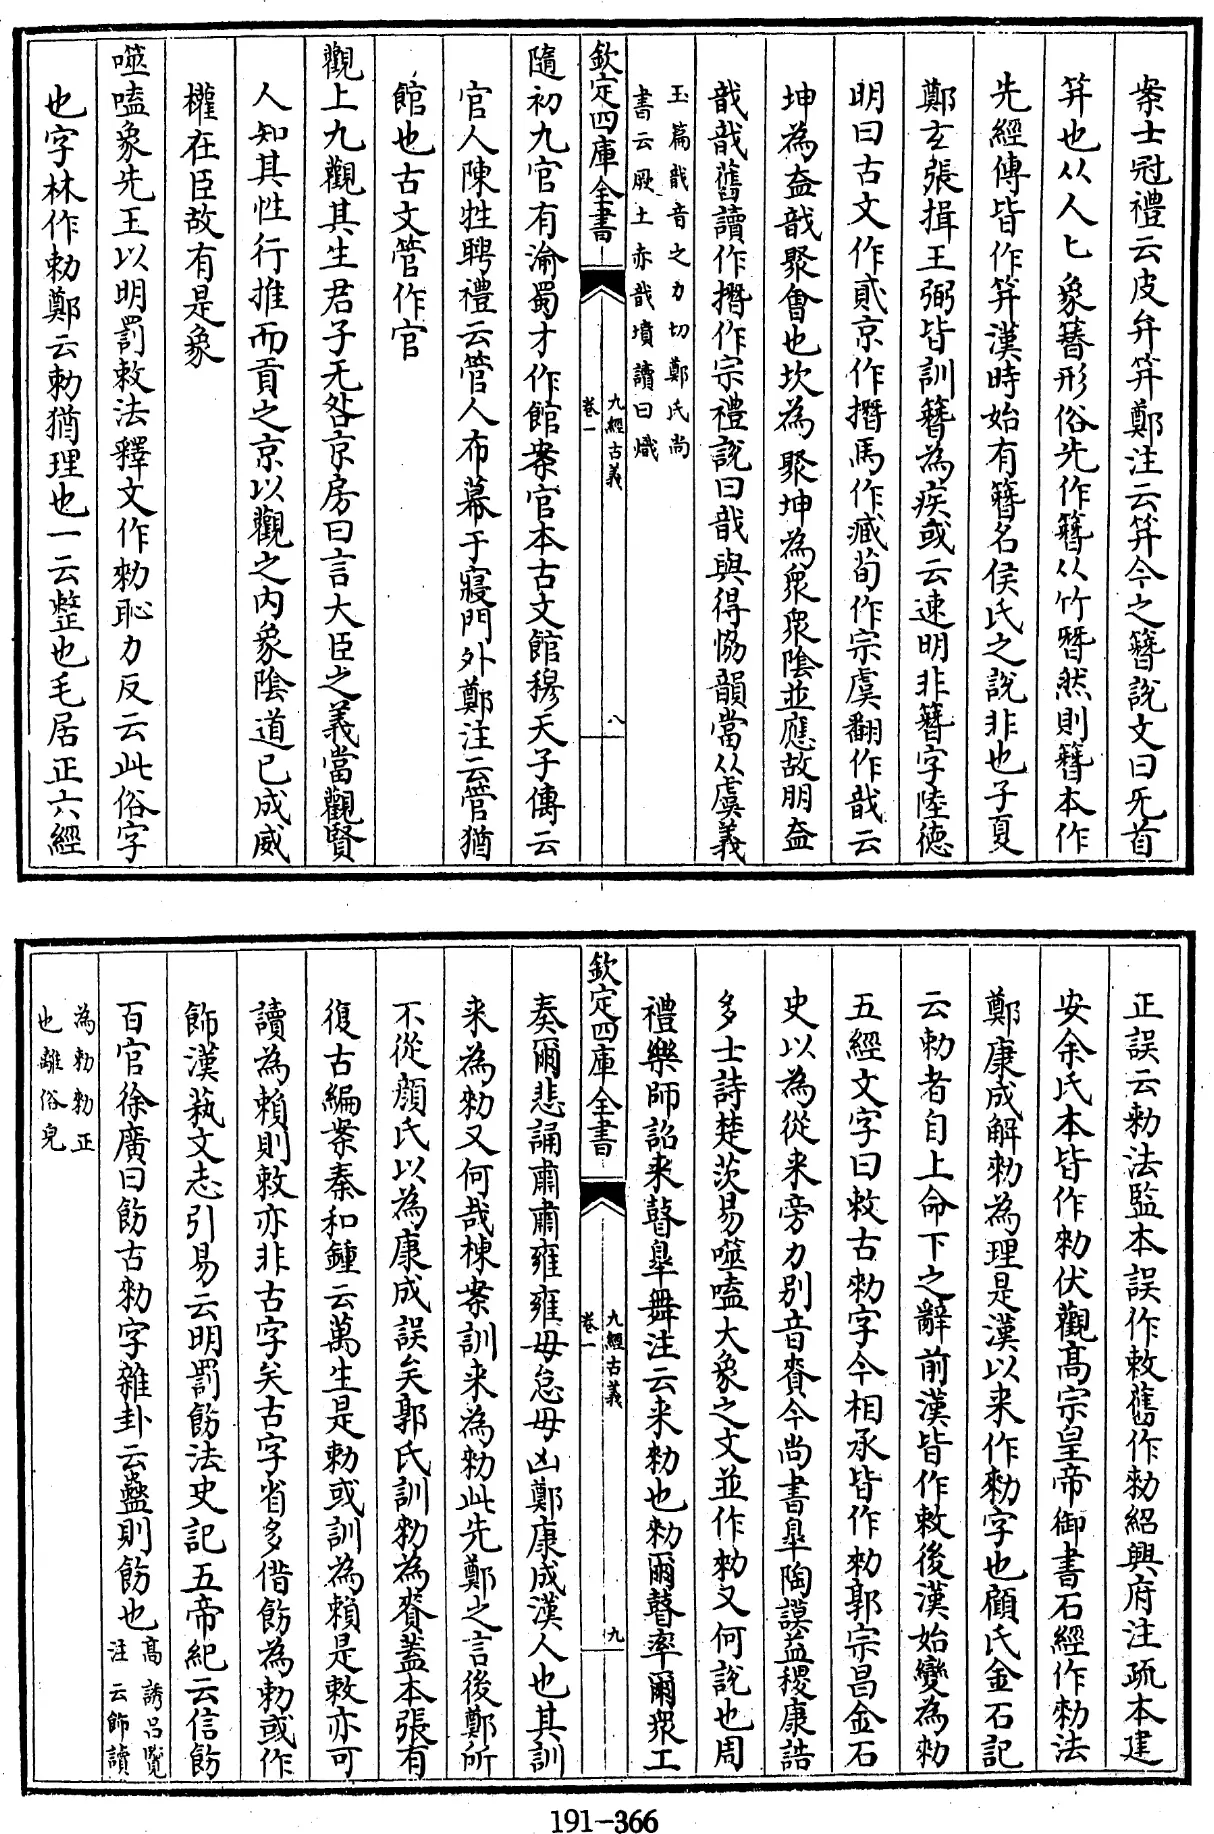 案士冠禮云皮弁笄鄭注云笄今之簪說文曰兂首
笄也从人匕象簪形俗兂作簪从竹朁然則簪本作
兂經傳皆作笄漢時始有簪名侯氏之說非也子夏
鄭玄張揖王弼皆訓簪為疾或云速明非簪字陸德
明曰古文作貣京作撍馬作臧荀作宗虞翻作戠云
坤為盍戠聚會也坎為聚坤為衆衆陰並應故朋盍
戠戠舊讀作撍作宗禮說曰戠與得協韻當从虞義
玉篇戠音之力切鄭氏尚
書云厥土赤戠墳讀曰熾
欽定四庫全書
九經古義
卷一
八
隨初九官有渝蜀才作館案官本古文館穆天子傳云
官人陳牲聘禮云管人布幕于寢門外鄭注云管猶
館也古文管作官
觀上九觀其生君子无咎京房曰言大臣之義當觀賢
人知其性行推而貢之京以觀之内象陰道已成威
權在臣故有是象
噬嗑象先王以明罰敕法釋文作勑恥力反云此俗字
也字林作勅鄭云勅猶理也一云整也毛居正六經
正誤云勅法監本誤作敕舊作勑紹興府注疏本建
安余氏本皆作勑伏觀髙宗皇帝御書石經作勑法
鄭康成解勑為理是漢以来作勑字也顧氏金石記
云勅者自上命下之辭前漢皆作敕後漢始變為勅
五經文字曰敕古勑字今相承皆作勑郭宗昌金石
史以為從来旁力别音賚今尚書臯陶謨益稷康誥
多士詩楚茨易噬嗑大象之文並作勑又何說也周
禮樂師詔来瞽臯舞注云来勑也勑爾瞽率爾衆工
欽定四庫全書
九經古義
卷一
九
奏爾悲誦肅肅雍雍毋怠毋凶鄭康成漢人也其訓
来為勑又何哉棟案訓来為勑此先鄭之言後鄭所
不從顔氏以為康成誤矣郭氏訓勑為賚蓋本張有
復古編案秦和鐘云萬生是勅或訓為賴是敕亦可
讀為賴則敕亦非古字矣古字省多借飭為勑或作
飾漢蓺文志引易云明罰飭法史記五帝紀云信飭
百官徐廣曰飭古勑字雜卦云蠱則飭也髙誘呂覽
注云飾讀
為勅勅正
也離俗皃
191-366